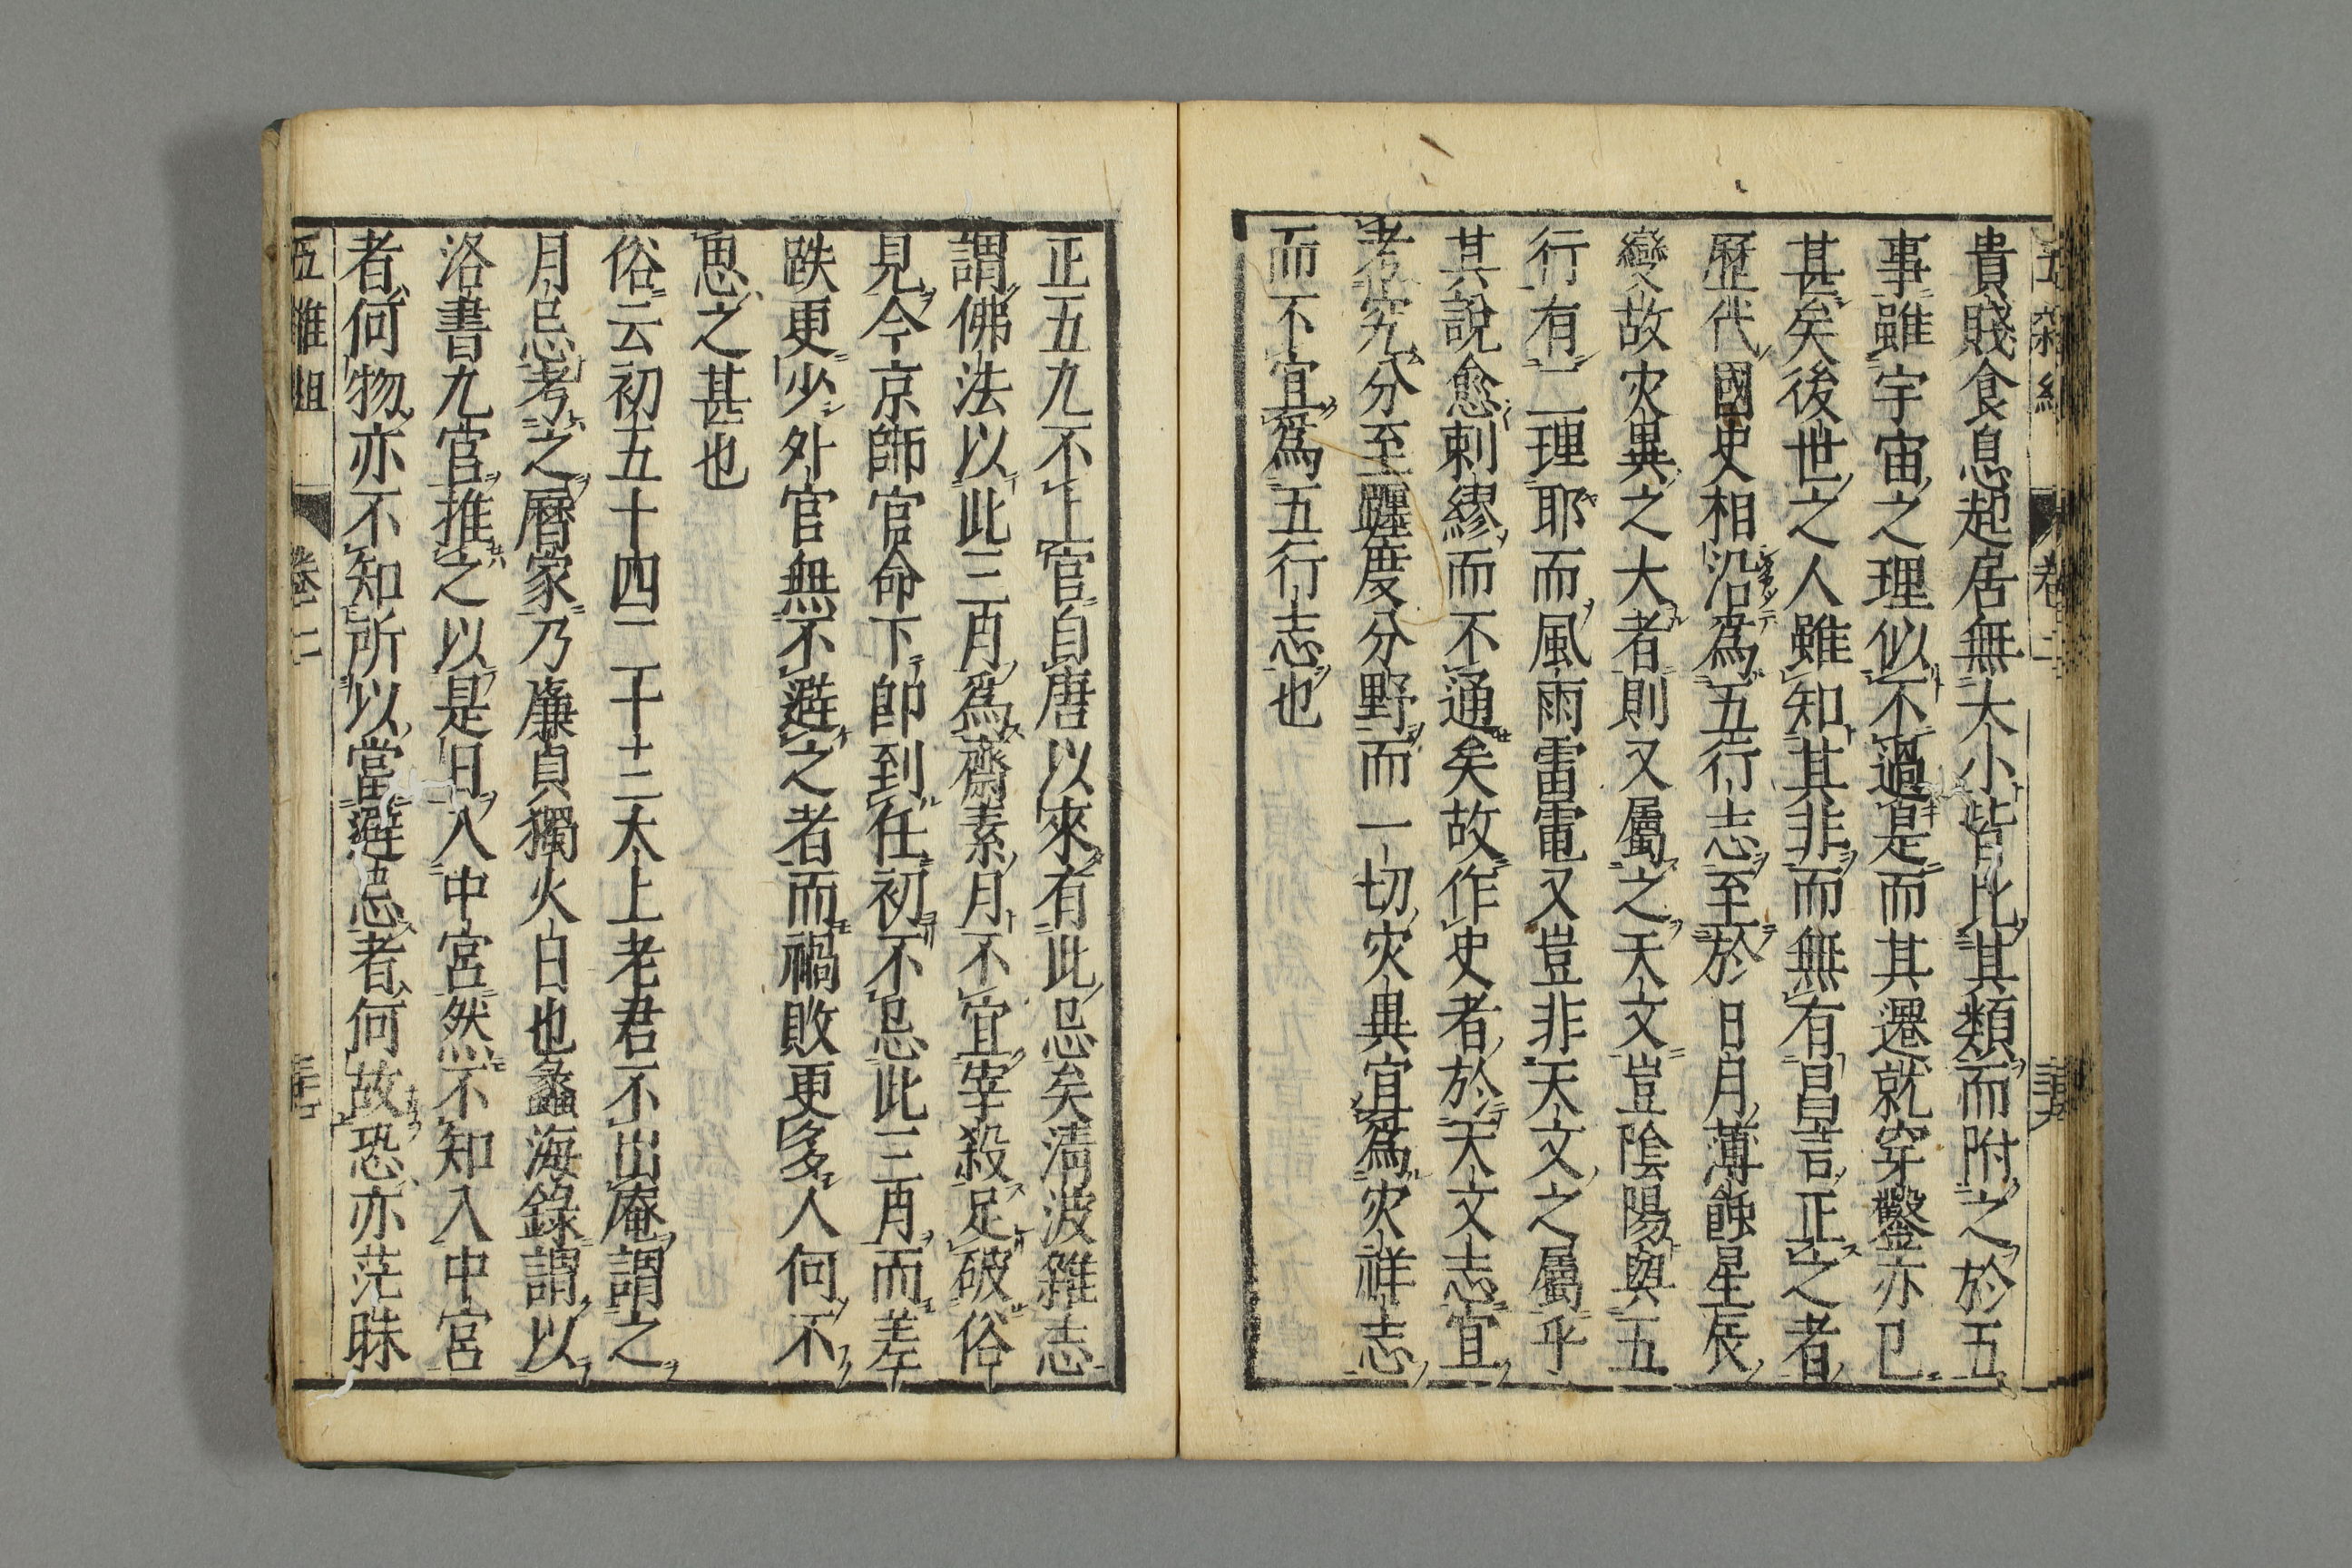 貴賤食息起居無大小皆比其類而附之於五
事雖宇宙之理似不過是而其遷就穿鑿亦已
甚矣後世之人雖知其非而無有昌言正之者
歷代國史相沿為五行志至於日月薄蝕星辰
變故灾異之大者則又屬之天文豈陰陽與五
行有二理耶而風雨雷電又豈非天文之屬乎
其說愈剌繆而不通矣故作史者於天文志宜
考究分至躔度分野而一切灾異宜為灾祥志
而不宜為五行志也
正五九不上官自唐以來有此忌矣清波雜志
謂佛法以此三月為齋素月不宜宰殺足破俗
見今京師官命下卽到任初不忌此三月而差
跌更少外官無不避之者而禍敗更多人何不
思之甚也
俗云初五十四二十三太上老君不出庵謂之
月忌考之曆家乃廉貞獨火日也蠡海錄謂以
洛書九宮推之以是日入中宮然不知入中宮
者何物亦不知所以當避忌者何故恐亦茫昧
五雜俎
卷二